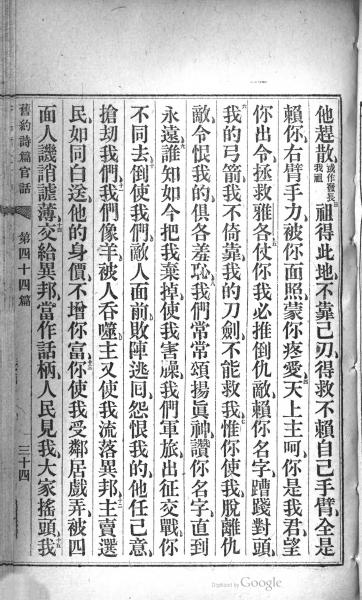 他趕散或作發長我祖三祖得此地不靠己刃得救不賴自己手臂全是
賴你右臂手力被你面照蒙你疼愛四天上主呵你是我君望
你出令拯救雅各五仗你我必推倒仇敵賴你名字蹧踐對頭
六我的弓箭我不倚靠我的刀劍不能救我七惟你使我脫離仇
敵令恨我的俱各羞恥八我們常常頌揚眞神讚你名字直到
永遠九誰知如今把我棄掉使我害臊我們軍旅出征交戰你
不同去十倒使我們敵人面前敗陣逃回怨恨我的他任己意
搶刼我們十一我們像羊被人吞噬主又使我流落異邦十二主賣選
民如同白送他的身價不增你富十三你使我受鄰居戲弄被四
面人譏誚謔薄十四交給異邦當作話柄人民見我大家搖頭十五我
舊約詩篇官話 第四十四篇 三十四
Digitized by Google